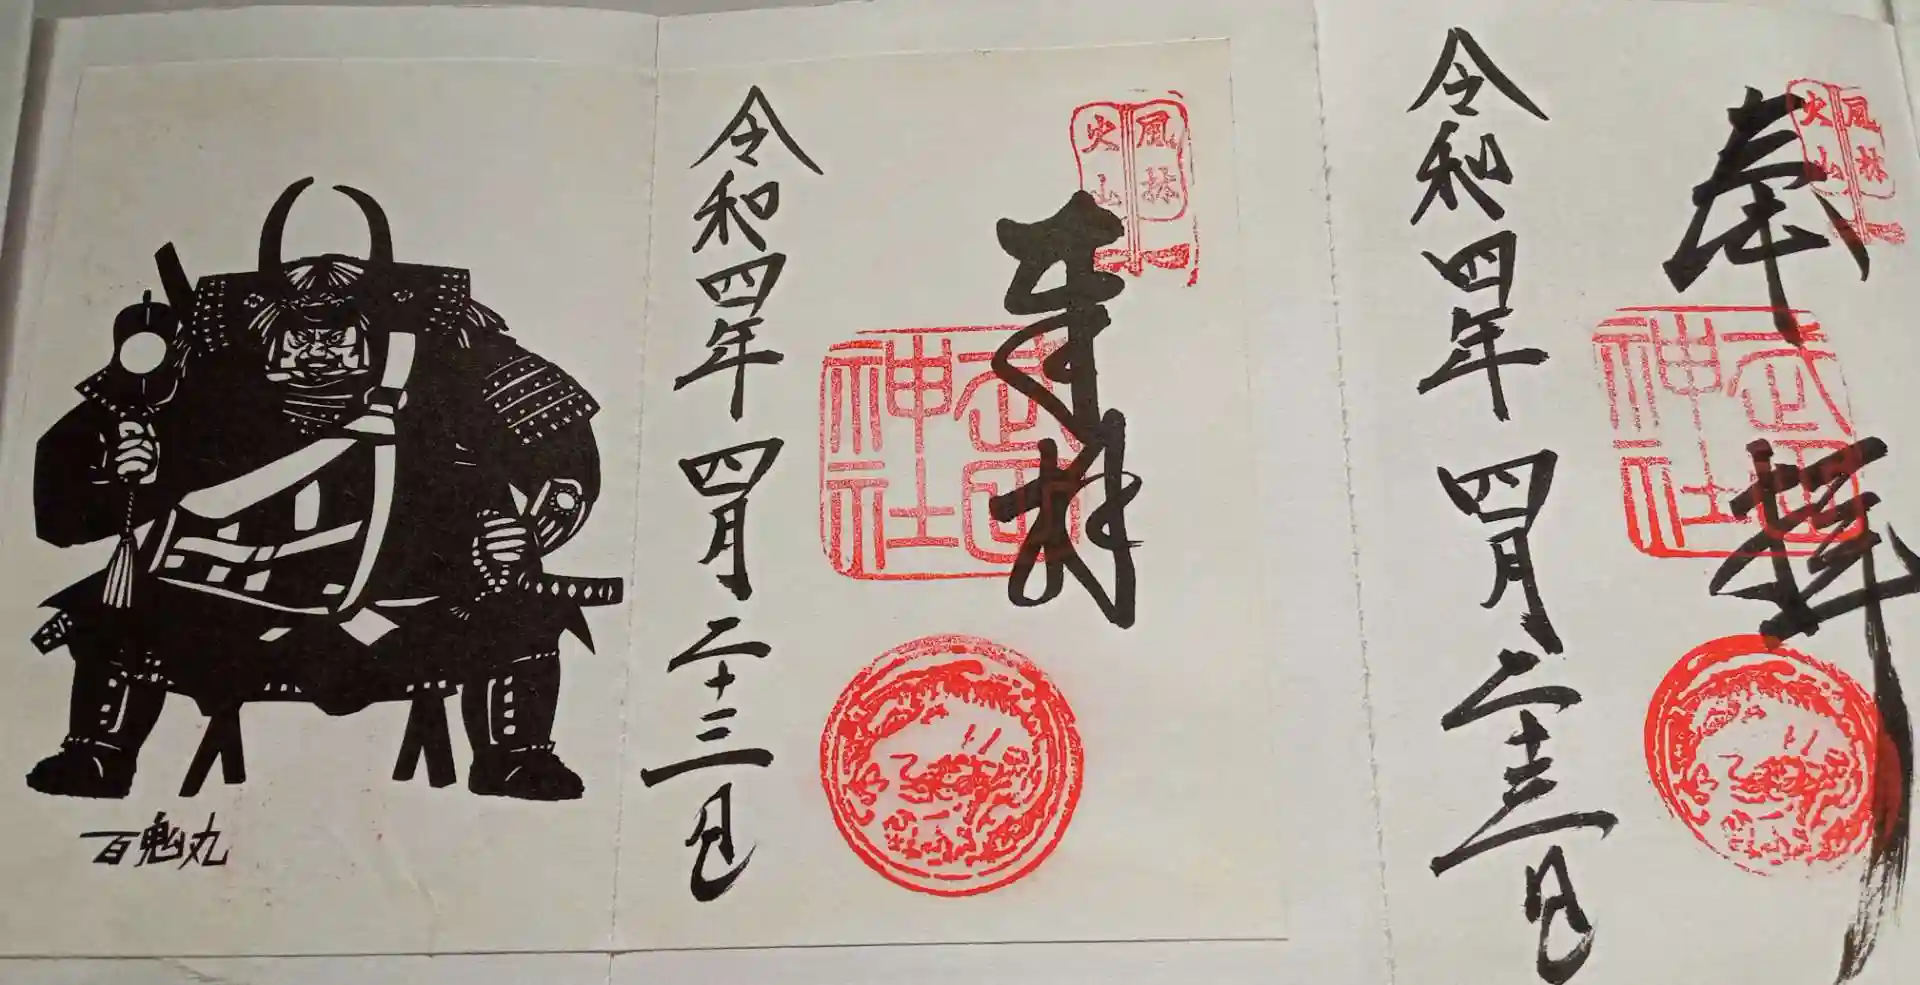 風林
火山
奉拝
武田
神社
令和四年四月二十三日
風林
火山
奉拝
武田
神社
令和四年四月二十三日
百鬼丸